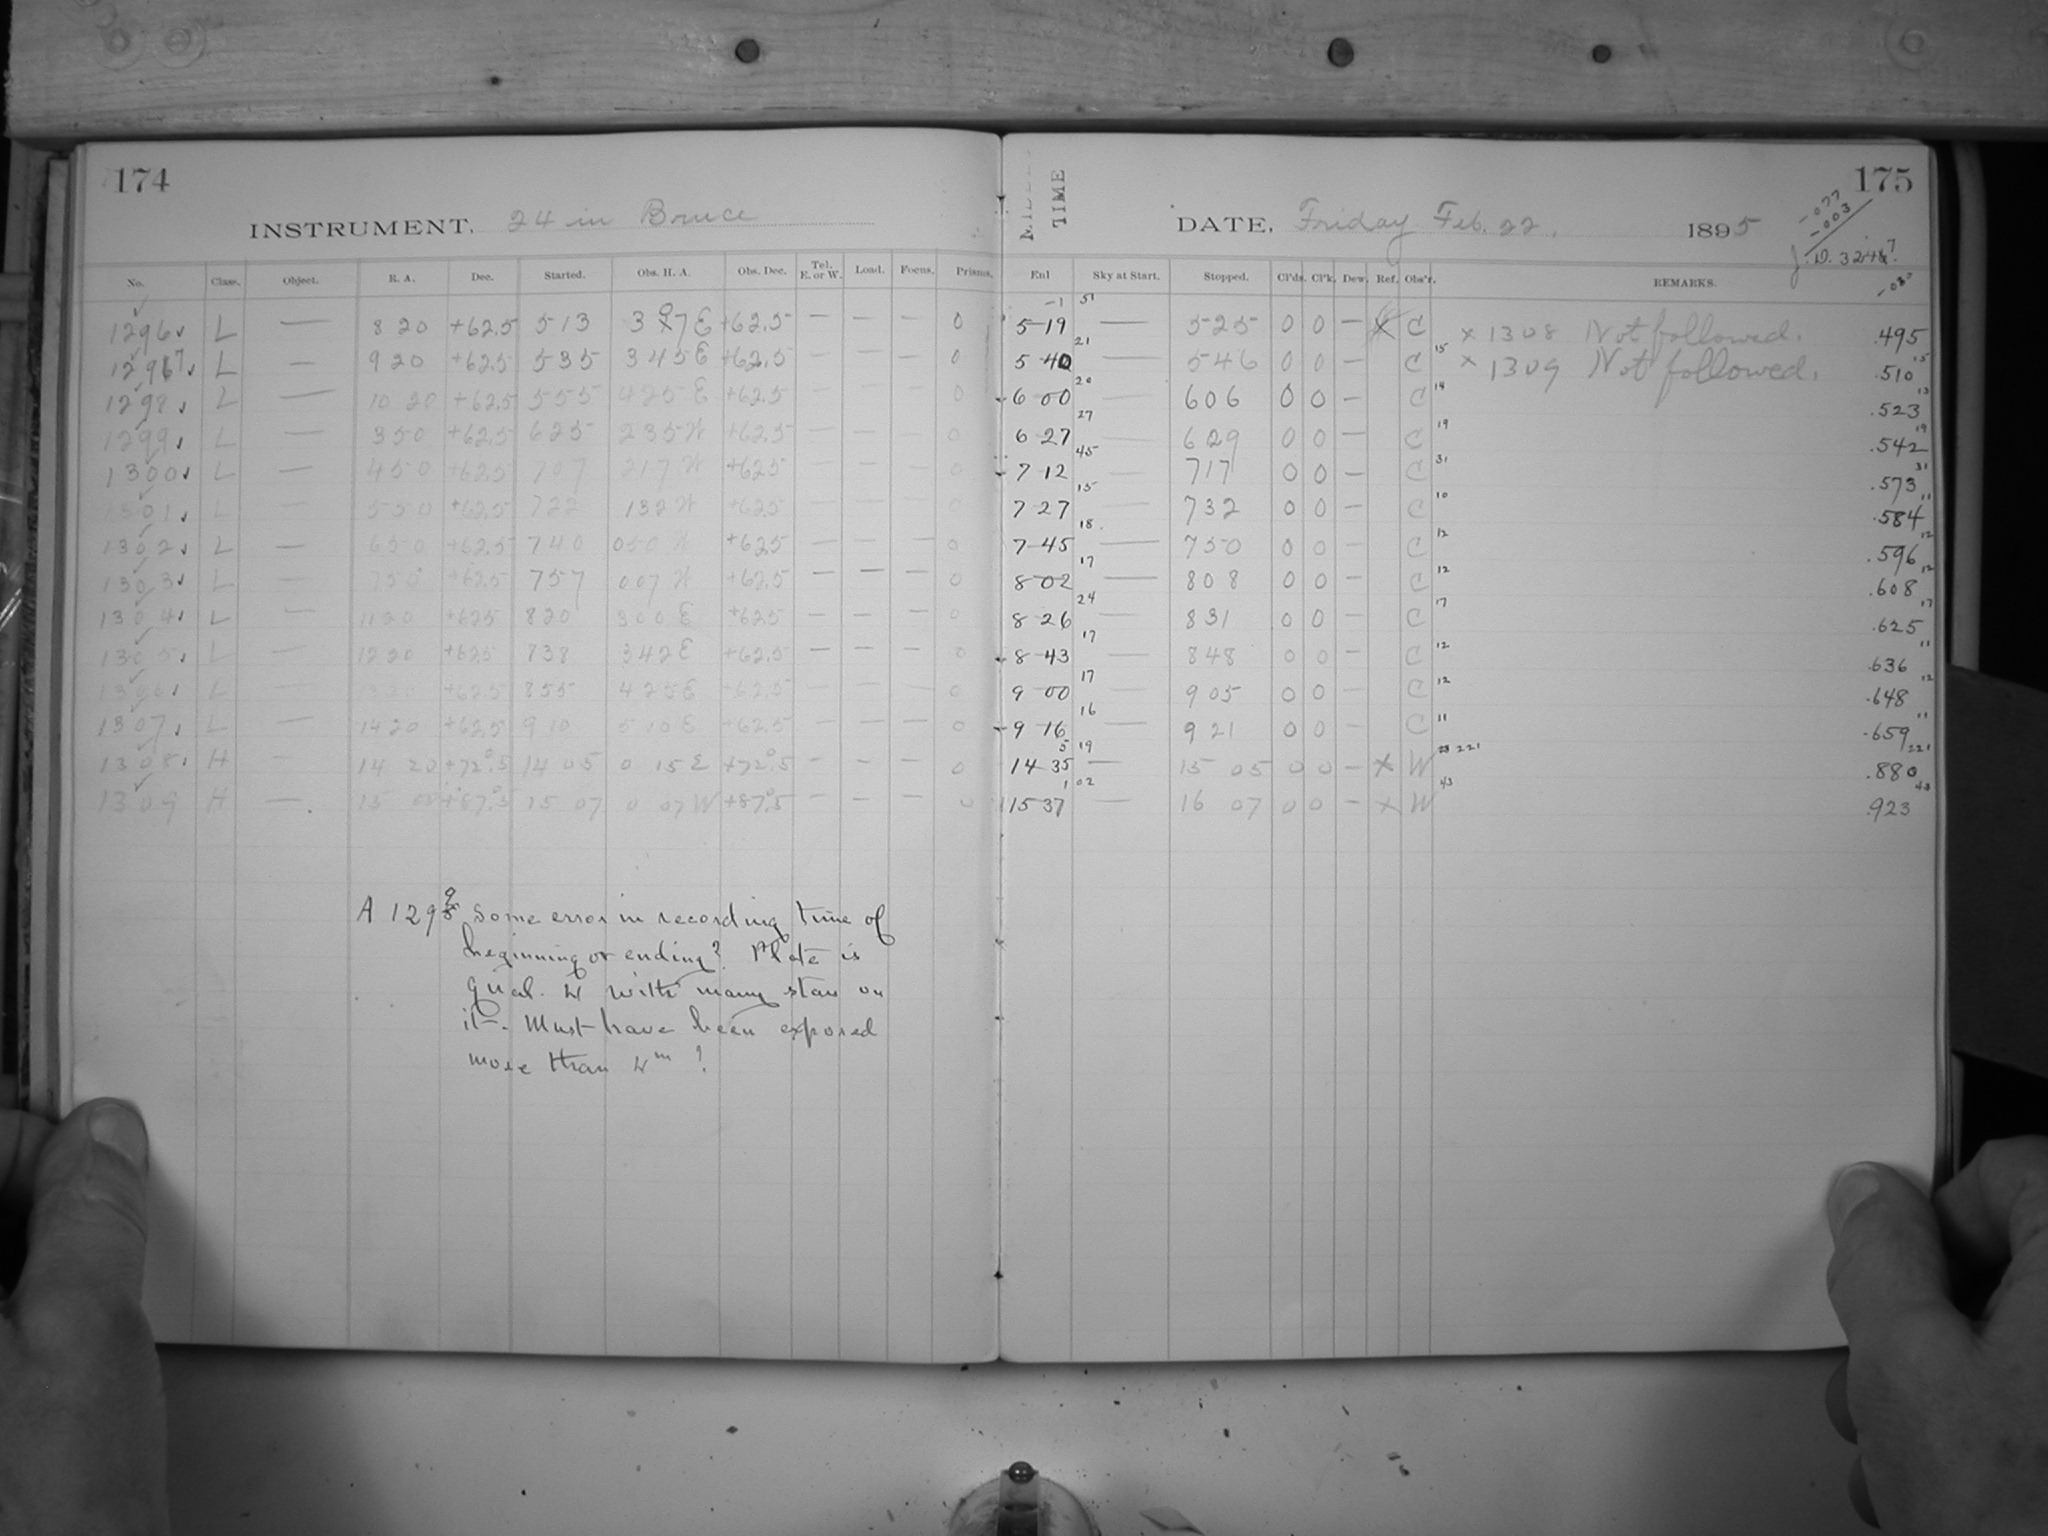 174
INSTRUMENT. 24 in Bruce
No. Class. Object. R. A. Dec. Started. Obs. H. A. Obs. Dec. Tel. E. or W. Load. Focus. Prisms.
1296 L — 8 20 +62.5 5 13 +62.5 — — — 0
1297 L — 9 20 +62.5 5 35 3 45 E +62.5 — — — 0
1298 L — 10 20 +62.5 5 55 4 25 E +62.5 — — — 0
1299 L — 3 50 +62.5 6 25 2 35 W +62.5 — — — 0
1300 L — 4 50 +62.5 7 07 2 17 W +62.5 — — — 0
1301 L — 5 50 +62.5 7 22 1 32 W +62.5 — — — 0
1302 L — 6 50 +62.5 7 40 0 50 W +62.5 — — — 0
1303 L — 7 50 +62.5 7 57 0 07 W +62.5 — — — 0
1304 L — 11 20 +62.5 8 20 3 00 E +62.5 — — — 0
1305 L — 12 20 +62.5 8 38 3 42 E +62.5 — — — 0
1306 L — 13 20 +62.5 8 55 4 25 E +62.5 — — — 0
1307 L — 14 20 +62.5 9 10 5 10 E +62.5 — — — 0
1308 H — 14 20 +72°.5 14 05 0 15 E +72°.5 — — — 0
1309 H — 15 00 +87°.5 15 07 0 07 W +87°.5 — — — 0
A 1299 some error in recording time of
beginning or ending? Plate is
qual. 4 with many stars on
it—. Must have been exposed
more than 4m?
175
TIME
DATE, Friday Feb. 22, 1895
-077
-003
J. D. 3247.
-080
Sky at Start. Stopped. Cl'ds. Cl'k. Dew. Ref. Obs'r. REMARKS.
-1 51
5-19 — 5 25 0 0 — x C x 1308 Not followed. .495
21 15 15
5 40 — 5 46 0 0 — C x 1309 Not followed. .510
20 14 13
6-00 — 6 06 0 0 — C .523
27 19 19
6 27 — 6 29 0 0 — C .542
45 31 31
7-12 — 7 17 0 0 — C .573
15 10 11
7-27 — 7 32 0 0 — C .584
18 12 12
7-45 — 7 50 0 0 — C .596
17 12 12
8-02 — 8 08 0 0 — C .608
24 17 17
8-26 — 8 31 0 0 — C .625
17 12 11
8-43 — 8 48 0 0 — C .636
17 12 12
9-00 — 9 05 0 0 — C .648
16 11 11
9-16 — 9 21 0 0 — C .659
5 19 221 221
14-35 — 15 05 0 0 — x W .880
1 02 43 43
15-37 — 16 07 0 0 — x W .923